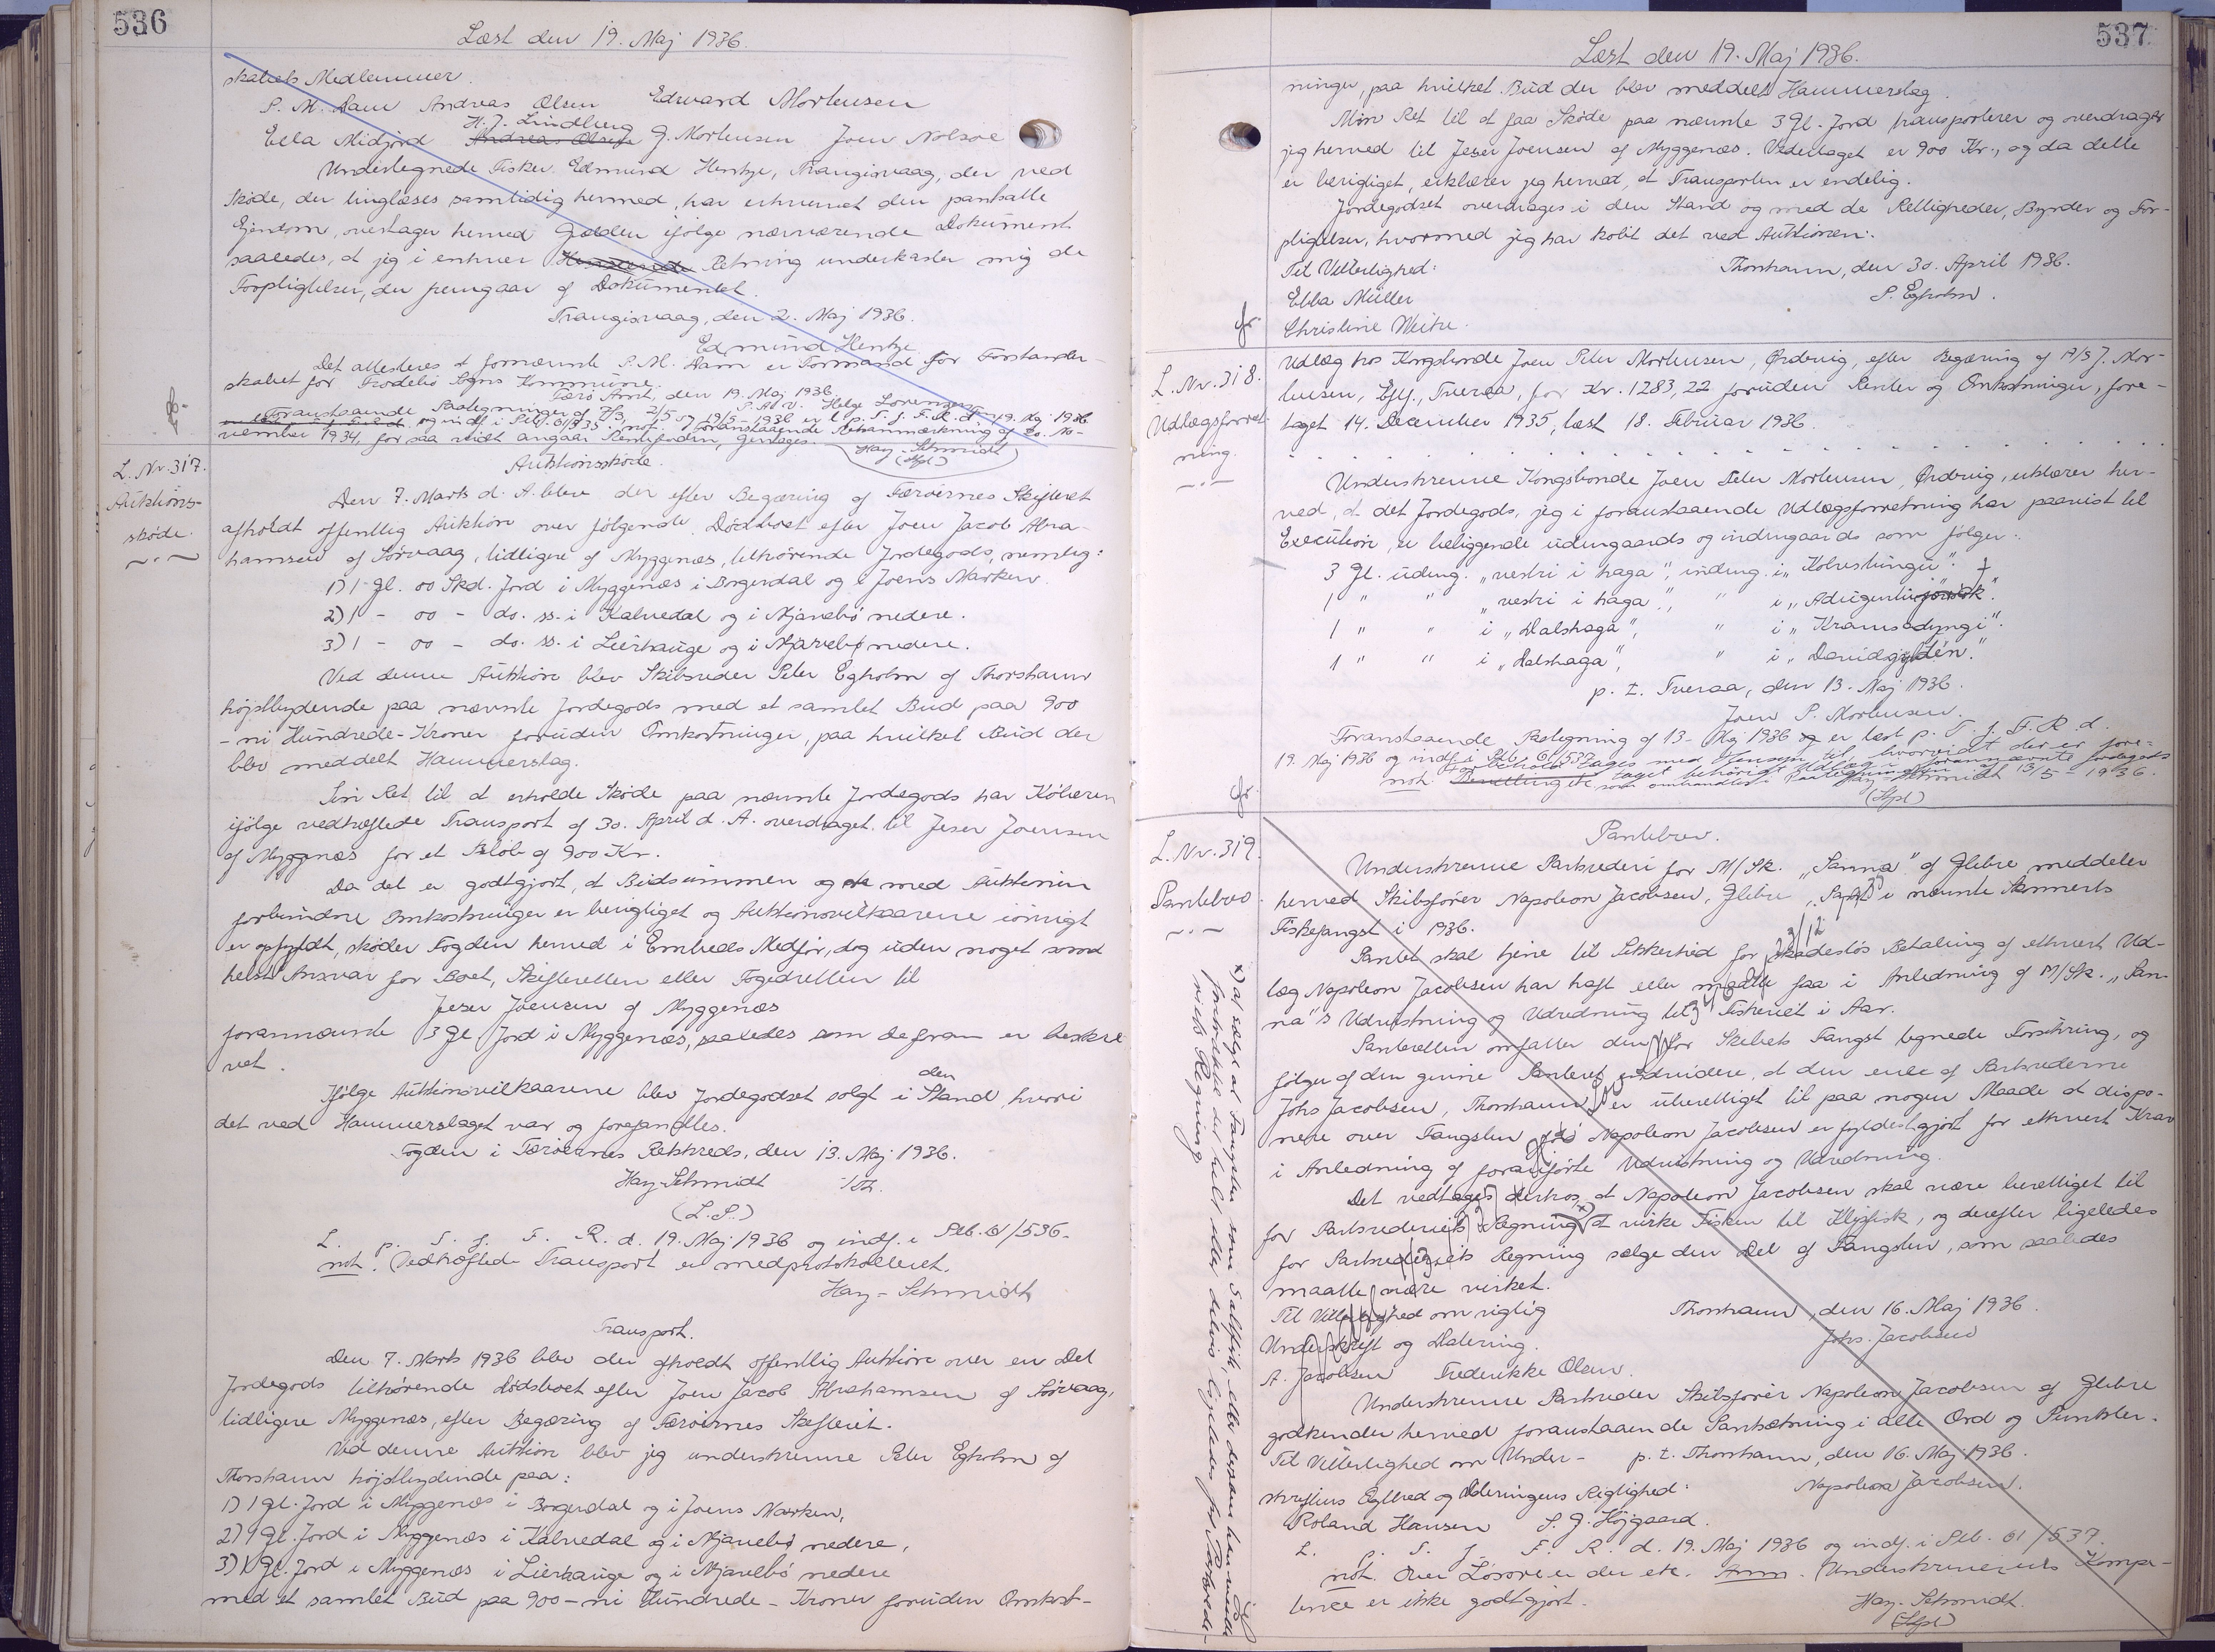 536
Læst den 19. Maj 1936.
skabets Medlemmer.
P. M. Dam Andreas Olsen Edward Mortensen
H. J. Lindberg
Ella Midjord Andreas Olsen J. Mortensen Joen Nolsøe
Undertegnede Fisker Edmund Hentze, Trangisvaag, der ved
Skøde, der tinglæses samtidig hermed, har erhvervet den pantsatte
Ejendom, overtager herved Gælden ifølge nærværende Dokument
saaledes, at jeg i enhver Henseende Retning underkaster mig de
Forpligtelser, der fremgaar af Dokumentet.
Trangisvaag, den 2. Maj 1936.
Edmund Hentze
Det attesteres at fornævnte P. M. Dam er Formand for Forstander-
skabet for Frodebø Sogns Kommune.
Færø Amt, den 19. Maj 1936.
P. A. V. Helge Lorenzen
Foranstaaende Paategninger af 7/3, 2/5 og 19/5 - 1936 er l. p. T. f. F. R. d. 19. Maj 1936
og indf. i Ptb. 61/535. not. Foranstaaende Retsanmærkning af 20. No-
vember 1934, for saa vidt angaar Remissen, gentages.
Hay-Schmidt
(Stpl)
L. Nr. 317.
Auktions-
skøde.
Auktionsskøde.
Den 7. Marts d. A. blev der efter Begæring af Færøernes Skifteret
afholdt offentlig Auktion over følgende Dødboet efter Joen Jacob Abra-
hamsen af Sørvaag, tidligere af Myggenæs, tilhørende Jordegods, nemlig:
1) 1 Gl. 00 Skd. Jord i Myggenæs i Borgardal og i Joens Marken.
2) 1 - 00 - do. ss. i Kalvedal og i Njarvebø nedere.
3) 1 - 00 - do. ss. i Leirhauge og i Njarvebø nedere.
Ved denne Auktion blev Skibsreder Peter Egholm af Thorshavn
højstbydende paa nævnte Jordegods med et samlet Bud paa 900
- ni Hundrede - Kroner foruden Omkostninger, paa hvilket Bud der
blev meddelt Hammerslag.
Sin Ret til at erholde Skøde paa nævnte Jordegods har Køberen
ifølge vedhæftede Transport af 30. April d. A. overdraget til Jeser Joensen
af Myggenæs for et Beløb af 900 Kr.
Da det er godtgjort, at Budsummen og de med Auktionen
forbundne Omkostninger er berigtiget og Auktionsvilkaarene iøvrigt
er opfyldt, skøder Fogden herved i Embeds Medfør, dog uden noget somd
helst Ansvar for Boet, Skifteretten eller Fogedretten til
Jeser Joensen af Myggenæs
forannævnte 3 Gl. Jord i Myggenæs, saaledes som de foran er beskre-
vet.
Ifølge Auktionsvilkaarene blev Jordegodset solgt i den Stand hvori
det ved Hammerslaget var og forefandtes.
Fogden i Færøernes Retskreds, den 13. Maj 1936.
Hay-Schmidt
(L. S.)
L. p. T. f. F. R. d. 19. Maj 1936 og indf. i Ptb. 61/536.
not. Vedhæftede Transport er medprotokolleret.
Hay-Schmidt
Transport.
Den 7. Marts 1936 blev der afholdt offentlig Auktion over en Del
Jordegods tilhørende Dødsboet efter Joen Jacob Abrahamsen af Sørvaag,
tidligere Myggenæs, efter Begæring af Færøernes Skifteret.
Ved denne Auktion blev jeg underskrevne Peter Egholm af
Thorshavn højstbydende paa:
1) 1 Gl. Jord i Myggenæs i Borgardal og i Joens Marken,
2) 1 Gl. Jord i Myggenæs i Kalvedal og i Njarvebø nedere,
3) 1 Gl. Jord i Myggenæs i Leirhauge og i Njarvebø nedere
med et samlet Bud paa 900 - ni Hundrede - Kroner foruden Omkost-
537
Læst den 19. Maj 1936.
ninger, paa hvilket Bud der blev meddelt Hammerslag.
Min Ret til at faa Skøde paa nævnte 3 Gl. Jord transporterer og overdrager
jeg herved til Jeser Joensen af Myggenæs. Vederlaget er 900 Kr., og da dette
er berigtiget, erklærer jeg herved, at Transporten er endelig.
Jordegodset overdrages i den Stand og med de Rettigheder, Byrder og For-
pligtelser, hvormed jeg har købt det ved Auktionen.
Til Vitterlighed: Thorshavn, den 30. April 1936.
Ebba Müller P. Egholm.
Christine Weihe.
L. Nr. 318.
Udlægsforret-
ning.
Udlæg hos Kongsbonde Joen Peter Mortensen, Ørdevig, efter Begæring af A/S J. Mor-
tensen, Eftf., Tveraa, for Kr. 1283,22 foruden Renter og Omkostninger, fore-
taget 14. December 1935, læst 18. Februar 1936.
Underskrevne Kongsbonde Joen Peter Mortensen, Ørdevig, erklærer her-
ved, at det Jordegods, jeg i foranstaaende Udlægsforretning har paavist til
Execution, er beliggende udengaards og indengaards som følger:
3 Gl. udeng. "vestri i haga", indeng. i "Kolvestungu".
1 " " "vestri i haga", " i
1 " " i "Dalshaga", " i "Kramsadyngi".
1 " " i "Dalshaga", " i
p. t. Tveraa, den 13. Maj 1936.
Joen P. Mortensen.
Foranstaaende Paategning af 13. Maj 1936 er læst p. T. f. F. R. d.
19. Maj 1936 og indf. i Ptb. 61/537
not. Forbehold tages med Hensyn til, hvorvidt der er fore-
taget behørigt Udlæg i forannævnte Jordegods
som omhandles i Paategningen af 13/5 - 1936.
Hay-Schmidt
(Stpl)
L. Nr. 319.
Pantebrev.
Pantebrev.
Underskrevne Partrederi for M/Sk. "Sanna" af Glibre meddeler
herved Skibsfører Napoleon Jacobsen, Glibre, Pant i nævnte Skonnerts
Fiskefangst i 1936.
Pantet skal tjene til Sikkerhed for skadesløs Betaling af ethvert Ud-
læg Napoleon Jacobsen har haft eller maatte faa i Anledning af M/Sk. "San-
na"s Udrustning og Udredning til Fiskeriet i Aar.
Panteretten omfatter den for Skibets Fangst tegnede Forsikring, og
følger af den givne Panteret endvidere, at den ene af Partrederne
Johs Jacobsen, Thorshavn, er uberettiget til paa nogen Maade at dispo-
nere over Fangsten før Napoleon Jacobsen er fyldestgjort for ethvert Krav
i Anledning af foranførte Udrustning og Udredning.
Det vedtages derhos, at Napoleon Jacobsen skal være berettiget til
for Partrederiets Regning x) at virke Fisken til Klipfisk, og derefter ligeledes
for Partrederiets Regning sælge den Del af Fangsten, som saaledes
maatte være virket.
Til Vitterlighed om rigtig Thorshavn, den 16. Maj 1936.
Underskrift og Datering. Johs. Jacobsen
A. Jacobsen Frederikke Olsen.
Underskrevne Partreder Skibsfører Napoleon Jacobsen af Glibre
godkender herved foranstaaende Pantsætning i alle Ord og Punkter.
Til Vitterlighed om Under- p. t. Thorshavn, den 16. Maj 1936.
skriftens Ægthed og Dateringens Rigtighed: Napoleon Jacobsen.
Roland Hansen P. J. Højgaard.
L. p. T. f. F. R. d. 19. Maj 1936 og indf. i Ptb. 61/537.
not. Over Løsøre er der etc. Anm. Underskrivernes Kompe-
tence er ikke godtgjort. Hay-Schmidt.
(Stpl)
x) at sælge af Fangsten som Saltfisk, eller dersom han maatte
foretrække det helt eller delvis ligeledes for Partrede-
riets Regning